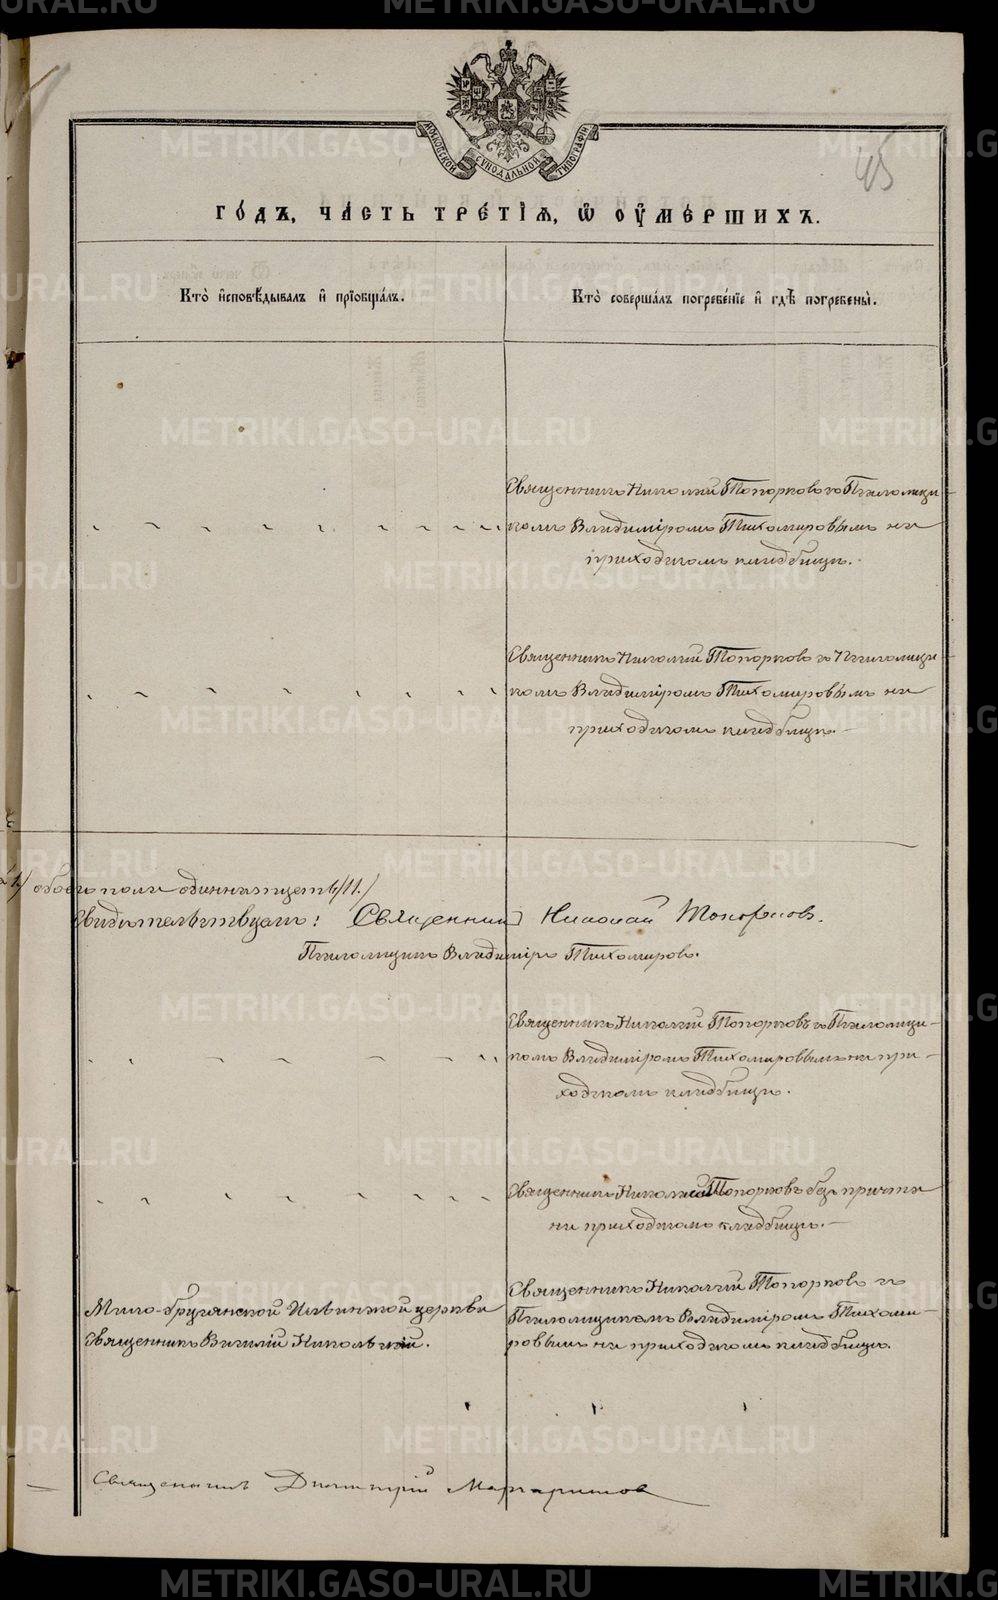 МОСКОВСКОЙ СУНОДАЛЬНОЙ ТИПОГРАФІИ
45
ГО́ДЪ, ЧА́СТЬ ТРЕ́ТІѦ, Ѿ ОУ҆МЕ́РШИХЪ.
Кто̀ и҆сповѣ́дывалъ и҆ прїѡбща́лъ.
Кто̀ соверша́лъ погребе́нїе и҆ гдѣ̀ погребены̀.
Священникъ Николай Топорковъ съ Псаломщи-
комъ Владиміромъ Тихомировымъ на
приходскомъ кладбищѣ.
Священникъ Николай Топорковъ съ Псаломщи-
комъ Владиміромъ Тихомировымъ на
приходскомъ кладбищѣ.
обоего пола одиннатцеть /11./
Свидѣтельствуемъ: Священникъ Николай Топорковъ.
Псаломщикъ Владиміръ Тихомировъ.
Священникъ Николай Топорковъ съ Псаломщи-
комъ Владиміромъ Тихомировымъ на при-
ходскомъ кладбищѣ.
Священникъ Николай Топорковъ безъ причта
на приходскомъ кладбищѣ.
Мало-Брусянской Ильинской церкви
Священникъ Василій Никольскій.
Священникъ Николай Топорковъ съ
Псаломщикомъ Владиміромъ Тихоми-
ровымъ на приходскомъ кладбищѣ.
Священникъ Димитрій Маргаритовъ
METRIKI.GASO-URAL.RU